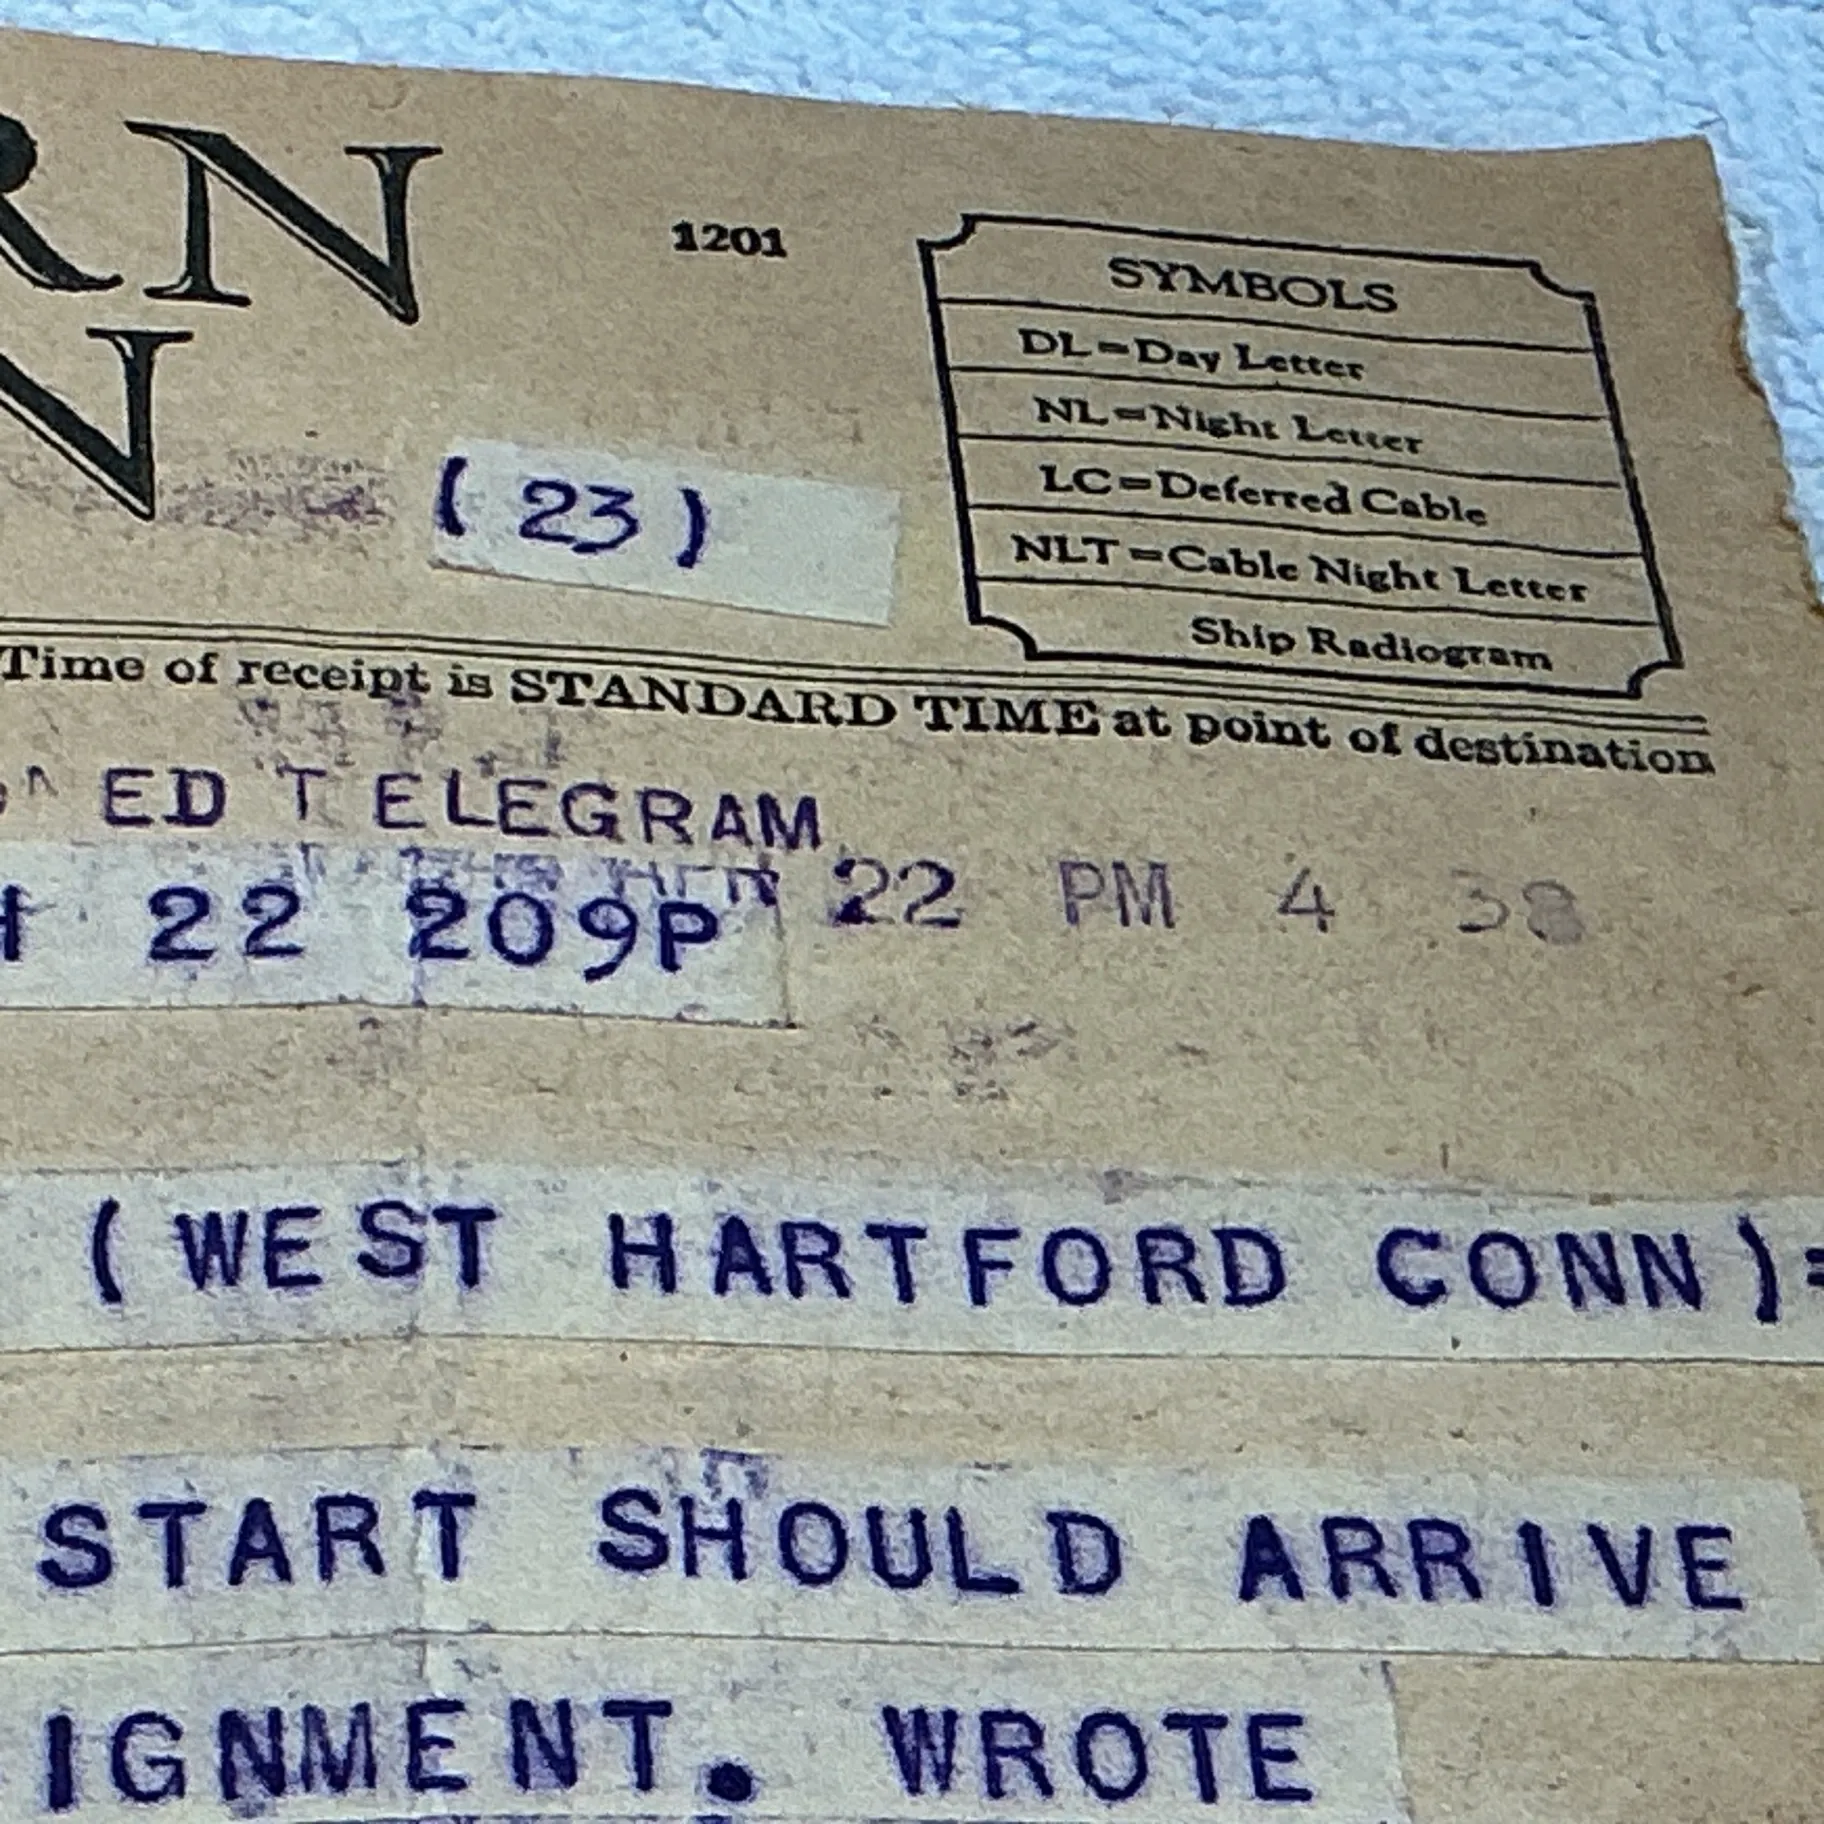 RN
N
1201
SYMBOLS
DL=Day Letter
NL=Night Letter
LC=Deferred Cable
NLT=Cable Night Letter
Ship Radiogram
(23)
Time of receipt is STANDARD TIME at point of destination
ED TELEGRAM
22 209P 22 PM 4 38
(WEST HARTFORD CONN)=
START SHOULD ARRIVE
IGNMENT. WROTE